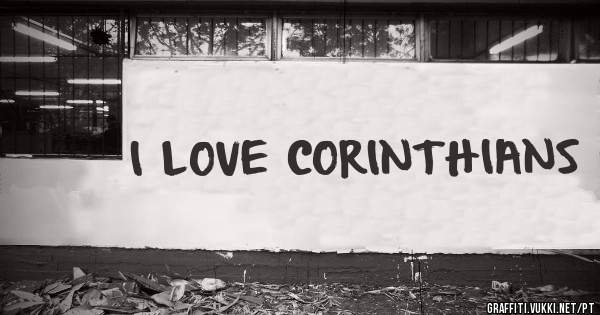 I LOVE CORINTHIANS
GRAFFITI.VUKKI.NET/PT